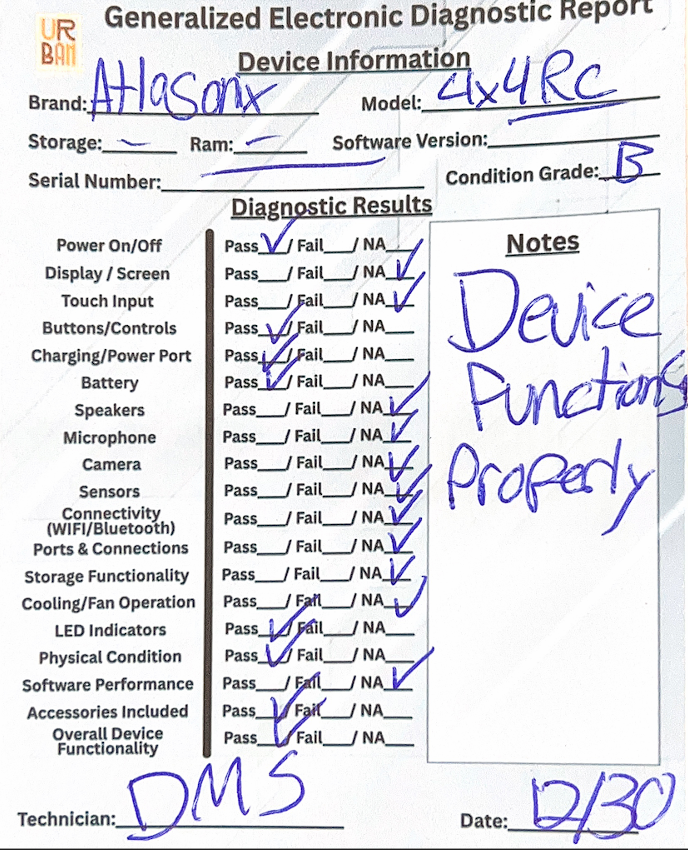 UR
BAN
Generalized Electronic Diagnostic Report
Device Information
Brand: Atlasonx Model: 4x4 RC
Storage: — Ram: — Software Version:
Serial Number: — Condition Grade: B
Diagnostic Results
Power On/Off Pass ✓ / Fail / NA
Display / Screen Pass / Fail / NA ✓
Touch Input Pass / Fail / NA ✓
Buttons/Controls Pass ✓ / Fail / NA
Charging/Power Port Pass ✓ / Fail / NA
Battery Pass ✓ / Fail / NA
Speakers Pass / Fail / NA ✓
Microphone Pass / Fail / NA ✓
Camera Pass / Fail / NA ✓
Sensors Pass / Fail / NA ✓
Connectivity
(WIFI/Bluetooth) Pass / Fail / NA ✓
Ports & Connections Pass / Fail / NA ✓
Storage Functionality Pass / Fail / NA ✓
Cooling/Fan Operation Pass / Fail / NA ✓
LED Indicators Pass ✓ / Fail / NA
Physical Condition Pass ✓ / Fail / NA
Software Performance Pass / Fail / NA ✓
Accessories Included Pass ✓ / Fail / NA
Overall Device
Functionality Pass ✓ / Fail / NA
Notes
Device
Functions
Properly
Technician: DMS Date: 12/30